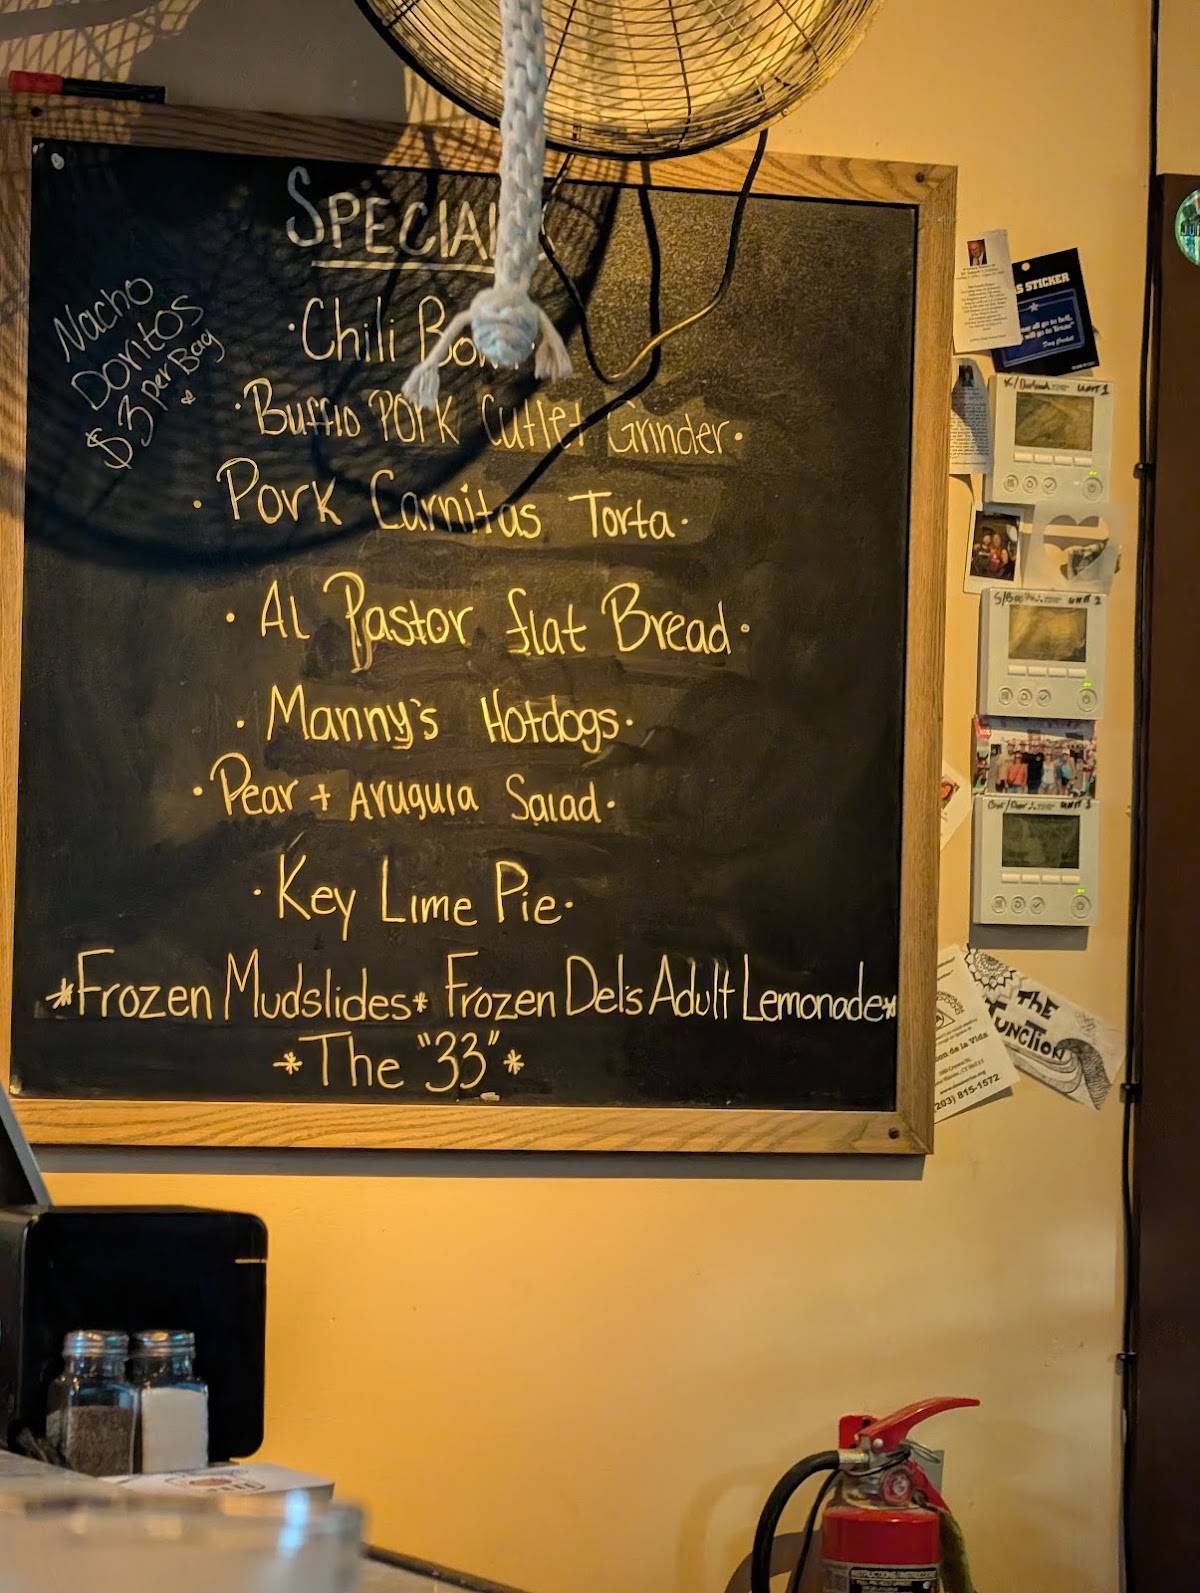 SPECIAL
Nacho
Doritos
$3 per Bag
·Chili Bo
·Buffio PORK Cutlet Grinder·
·Pork Carnitas Torta·
·AL Pastor flat Bread·
·Manny's Hotdogs·
·Pear + Aruguia Salad·
·Key Lime Pie·
*Frozen Mudslides* Frozen Del's Adult Lemonade*
*The "33"*
S STICKER
UNIT 1
UNIT 2
UNIT 3
THE
JUNCTION
on de la Vida
(203) 815-1572
INSTRUCTIONS/INSTRUC